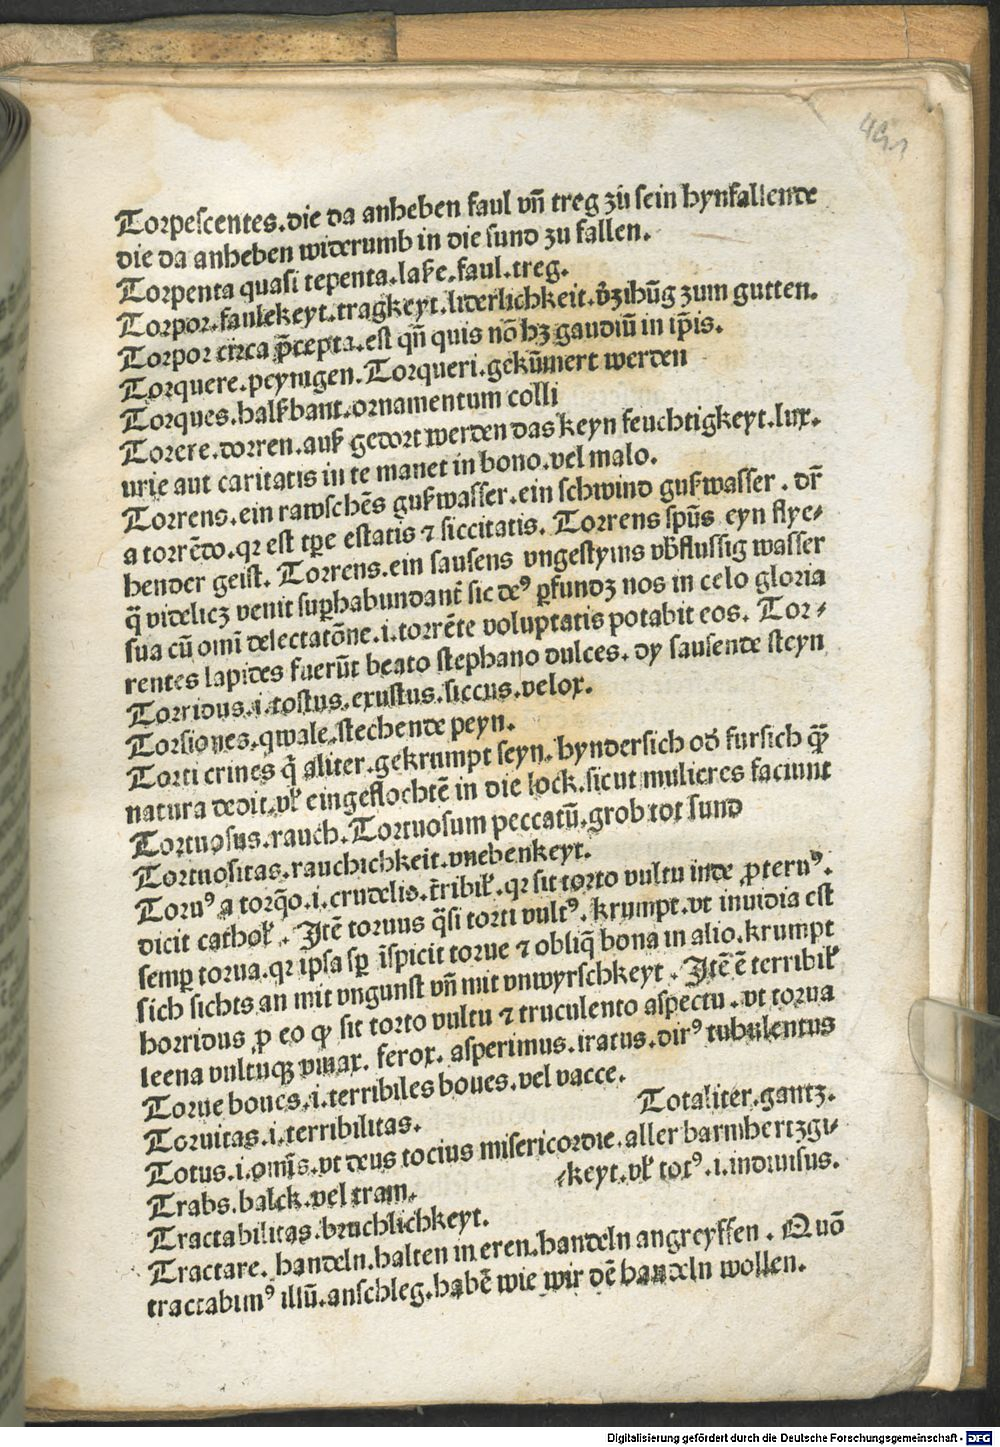 451
Torpescentes.die da anheben faul vñ treg zů sein hynfallende
die da anheben widerumb in die sund zu fallen.
Torpenta quasi tepenta.laße.faul.treg.
Torpor.faulekeyt.tragkeyt.liderlichkeit.v̄zihūg zum gutten.
Torpor circa p̄cepta.est qn̄ quis nō hꝫ gaudiū in ip̄is.
Torquere.peynigen.Torqueri.gekūmert werden
Torques.halßbant.ornamentum colli
Torere.dorren.auß gedort werden das keyn feuchtigkeyt.lux⸗
urie aut caritatis in te manet in bono.vel malo.
Torrens.ein rawschēs gußwasser.ein schwind gußwasser. dr̄
a torrēdo.qꝛ est tꝑe estatis ⁊ siccitatis. Torrens spūs eyn flye⸗
hender geist. Torrens.ein sausens vngestyms vb̄flussig wasser
q̄ videlicꝫ venit suꝑhabundant̄ sic deꝰ ꝑfundꝫ nos in celo gloria
sua cū omī delectatōne.i.torrēte voluptatis potabit eos. Tor⸗
rentes lapides fuerūt beato stephano dulces. dy sausende steyn
Torridus.i.tostus.exustus.siccus.velox.
Torsiones.qwale.stechende peyn.
Torti crines q̄ aliter.gekrumpt seyn.hyndersich od̄ fursich qꝫ̄
natura dedit.vl̄ eingeflochtē in die lock.sicut mulieres faciunt
Tortuosus.rauch.Tortuosum peccatū.grob tot sund
Tortuositas.rauchichkeit.vnebenkeyt.
Toruꝰ a torq̄o.i.crudelis.t̄ribil̄.qꝛ sit torto vultu inde ꝓteruꝰ.
dicit cathol̄. Itē toruus q̄si torti vultꝰ.krumpt.vt inuidia est
semꝑ torua.qꝛ ipsa sꝑ īspicit torue ⁊ obliq̄ bona in alio.krumpt
sich sichts an mit vngunst vñ mit vnwyrschkeyt. Itē ē terribil̄
horridus ꝓ eo ꝙ sit torto vultu ⁊ truculento aspectu.vt torua
leena vultuqꝫ minax. ferox. asperimus.iratus.dirꝰ tubulentus
Torue boues.i.terribiles boues.vel vacce.
Toruitas.i.terribilitas. Totaliter.gantz.
Totus.i.om̄is.vt deus tocius misericordie.aller barmhertzgi⸗
Trabs.balck.vel tram. ⸗keyt.vl̄ totꝰ.i.indiuisus.
Tractabilitas.bruchlichkeyt.
Tractare. handeln.halten in eren.handeln angreyffen. Quō
tractabimꝰ illū.anschleg.habē wie wir dē handeln wollen.
Digitalisierung gefördert durch die Deutsche Forschungsgemeinschaft - DFG